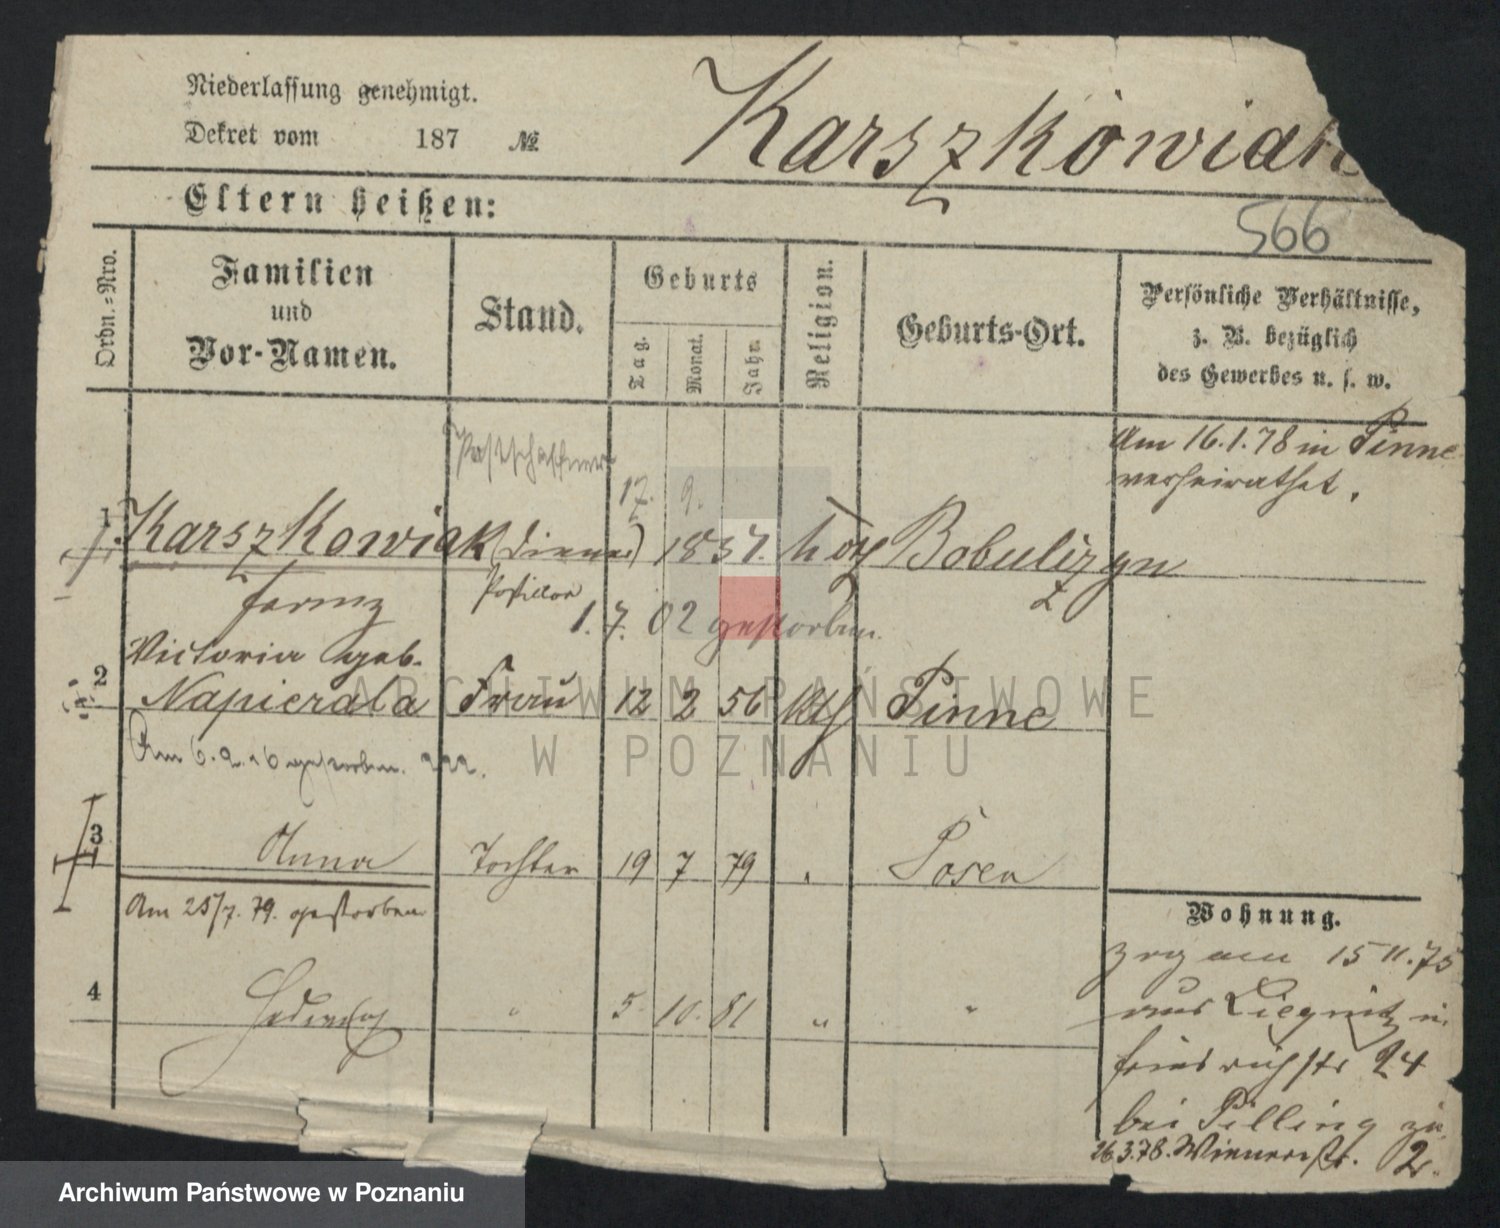 Niederlassung genehmigt.
Dekret vom 187 №
Karszkowiak
Eltern heißen:
566
Ordn.=Nro.
Familien
und
Vor-Namen.
Stand.
Geburts
Tag.
Monat.
Jahr.
Religion.
Geburts-Ort.
Persönliche Verhältnisse,
z. B. bezüglich
des Gewerbes u. s. w.
Am 16.1.78 in Pinne
verheirathet.
Postschaffner
17. 9.
1 Karszkowiak (Diener) 1837. kath Bobulczyn
Franz Postillon
1. 7. 02 gestorben.
Victoria geb.
2 Napierala Frau 12 2 56 kth Pinne
Am 6. 2. 16 gestorben.
3 Anna Tochter 19 7 79 " Posen
Am 25/7. 79. gestorben
4 Hedwig " 5 10. 81 " "
Wohnung.
zog am 15 11. 75
aus Liegnitz n.
Friedrichstr 24
bei Pilling zu
26.3.78. Wienerstr. 2.
ARCHIWUM PAŃSTWOWE
W POZNANIU
Archiwum Państwowe w Poznaniu